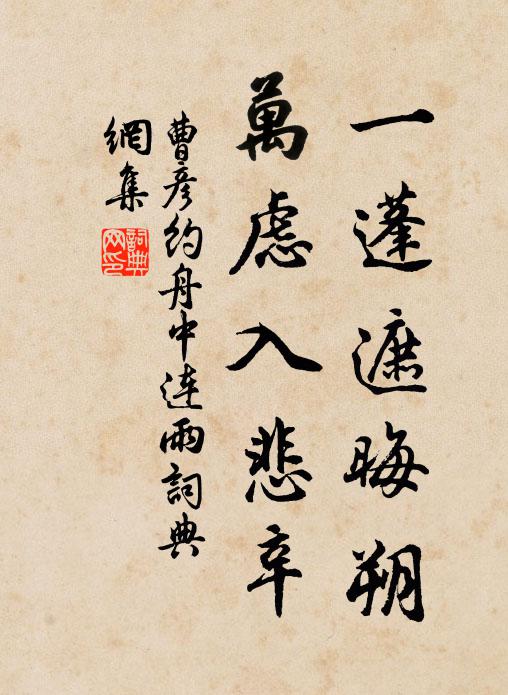 一蓬遮晦朔
萬慮入悲辛
曹彦約舟中連雨詞典
網集
詞典
网印